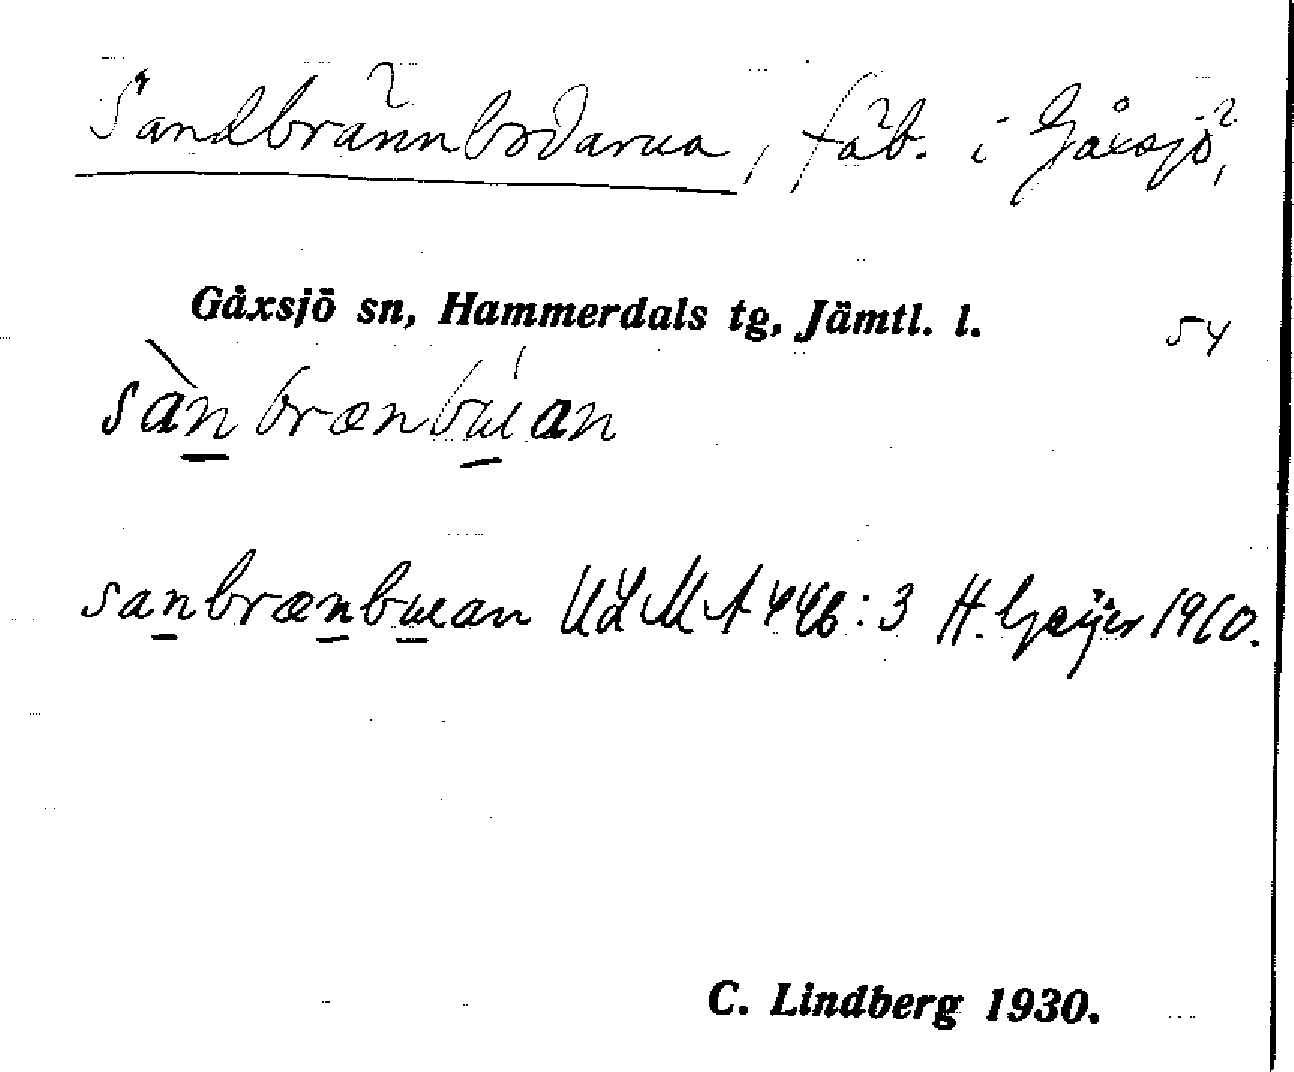 Sandbrännbodarna, fäb. i Gåxsjö,
Gåxsjö sn, Hammerdals tg, Jämtl. l.
54
sànbrænbuan
sanbrænbuan ULMA 446:3 H. Geijer 1910.
C. Lindberg 1930.